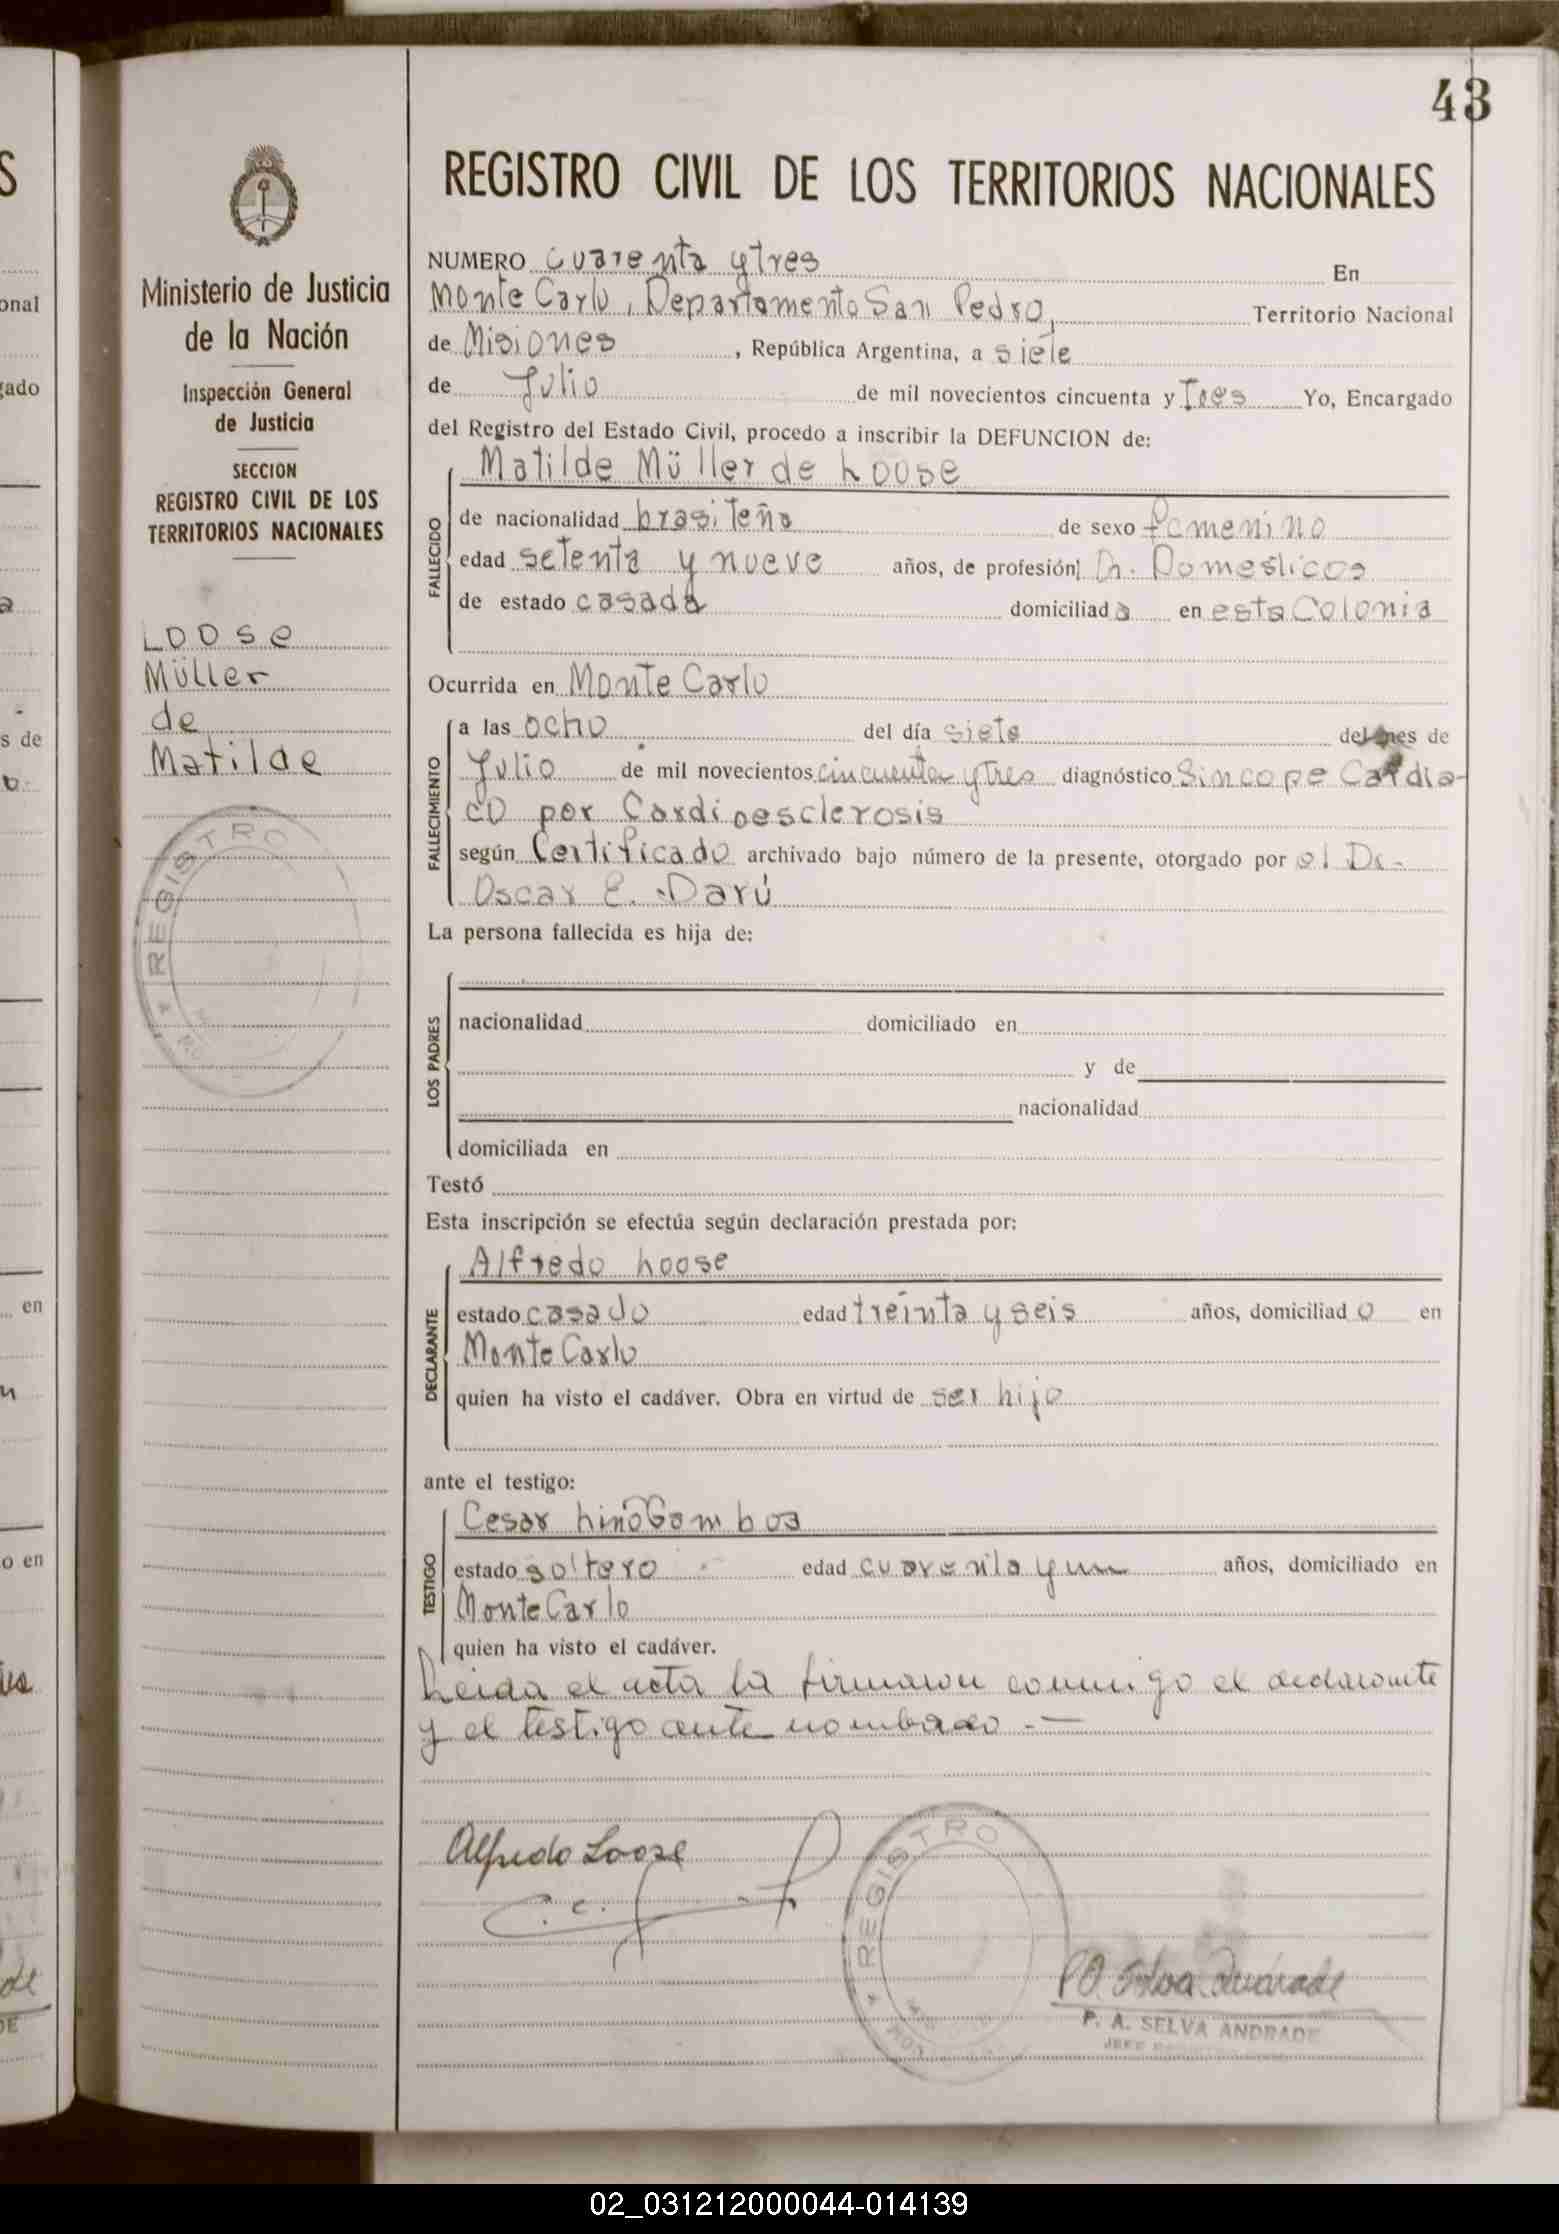 43
REGISTRO CIVIL DE LOS TERRITORIOS NACIONALES
Ministerio de Justicia
de la Nación
Inspección General
de Justicia
SECCION
REGISTRO CIVIL DE LOS
TERRITORIOS NACIONALES
Loose
Müller
de
Matilde
REGISTRO
NUMERO cuarenta y tres En
Monte Carlo, Departamento San Pedro, Territorio Nacional
de Misiones, República Argentina, a siete
de Julio de mil novecientos cincuenta y Tres Yo, Encargado
del Registro del Estado Civil, procedo a inscribir la DEFUNCION de:
Matilde Müller de Loose
FALLECIDO
de nacionalidad brasileña de sexo femenino
edad setenta y nueve años, de profesión Domesticos
de estado casada domiciliada en esta Colonia
Ocurrida en Monte Carlo
FALLECIMIENTO
a las ocho del día siete del mes de
Julio de mil novecientos cincuenta y tres diagnóstico Sincope Cardia-
co por Cardioesclerosis
según Certificado archivado bajo número de la presente, otorgado por el Dr.
Oscar E. Darú
La persona fallecida es hija de:
LOS PADRES
nacionalidad domiciliado en
y de
nacionalidad
domiciliada en
Testó
Esta inscripción se efectúa según declaración prestada por:
Alfredo Loose
DECLARANTE
estado casado edad treinta y seis años, domiciliado en
Monte Carlo
quien ha visto el cadáver. Obra en virtud de ser hijo
ante el testigo:
Cesar Lino Gamboa
TESTIGO
estado soltero edad cuarenta y un años, domiciliado en
Monte Carlo
quien ha visto el cadáver.
Leida el acta la firmaron conmigo el declarante
y el testigo ante nombrado.—
Alfredo Loose
REGISTRO
P. A. Selva Andrade
P. A. SELVA ANDRADE
JEFE
02_031212000044-014139